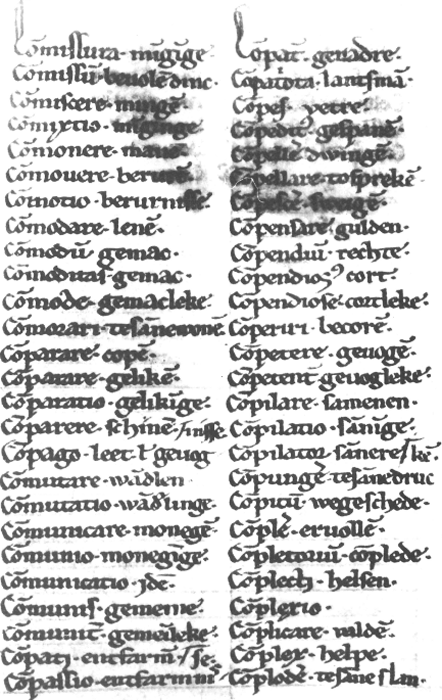 Cōmissura · mīgīge
Cōmissū · beuolē dinc ·
Cōmiscere · mingē
Cōmixtio · mīginge
Cōmonere · manē
Cōmouere · berurē
Cōmotio · berurnisse
Cōmodare · lenē ·
Cōmodū gemac ·
Cōmoditas · gemac ·
Cōmode · gemacleke
Cōmorari · tesāne wonē
Cōparare · copē ·
Cōparare · gelikē ·
Cōparatio · gelikīge ·
Cōparere · schine /nisse
Cōpago · leet ł geuog
Cōmutare · wādlen
Cōmutatio · wādlinge ·
Cōmunicare · monegē
Cōmunio · monegīge ·
Cōmunicatio · idē
Cōmunis · gemeine ·
Cōmunit · gemeīleke ·
Cōpati · entfarmē /se
Cōpassio · entfarmnis
Cōpar · geuadre ·
Cōpatriota · lantsmā ·
Cōpes · vetre ·
Cōpedit · gespanē ·
Cōpellē dwingē ·
Cōpellare · tosprekē
Cōpescē · sweigē ·
Cōpensare gulden ·
Cōpendiū · rechte ·
Cōpendiosꝰ cort
Cōpendiose · cortleke ·
Cōperiri · becorē ·
Cōpetere · geuogē ·
Cōpetent geuogleke ·
Cōpilare · samenen ·
Cōpilatio · sānīge ·
Cōpilator · sānere /kē
Cōpungē tesānedruc
Cōpitū · wegeschede ·
Cōplē · eruollē ·
Cōpletoriū · cōplede ·
Cōplecti · helsen ·
Cōplexio ·
Cōplicare · valdē ·
Cōplex · helpe ·
Cōplodē · tesāne slan ·